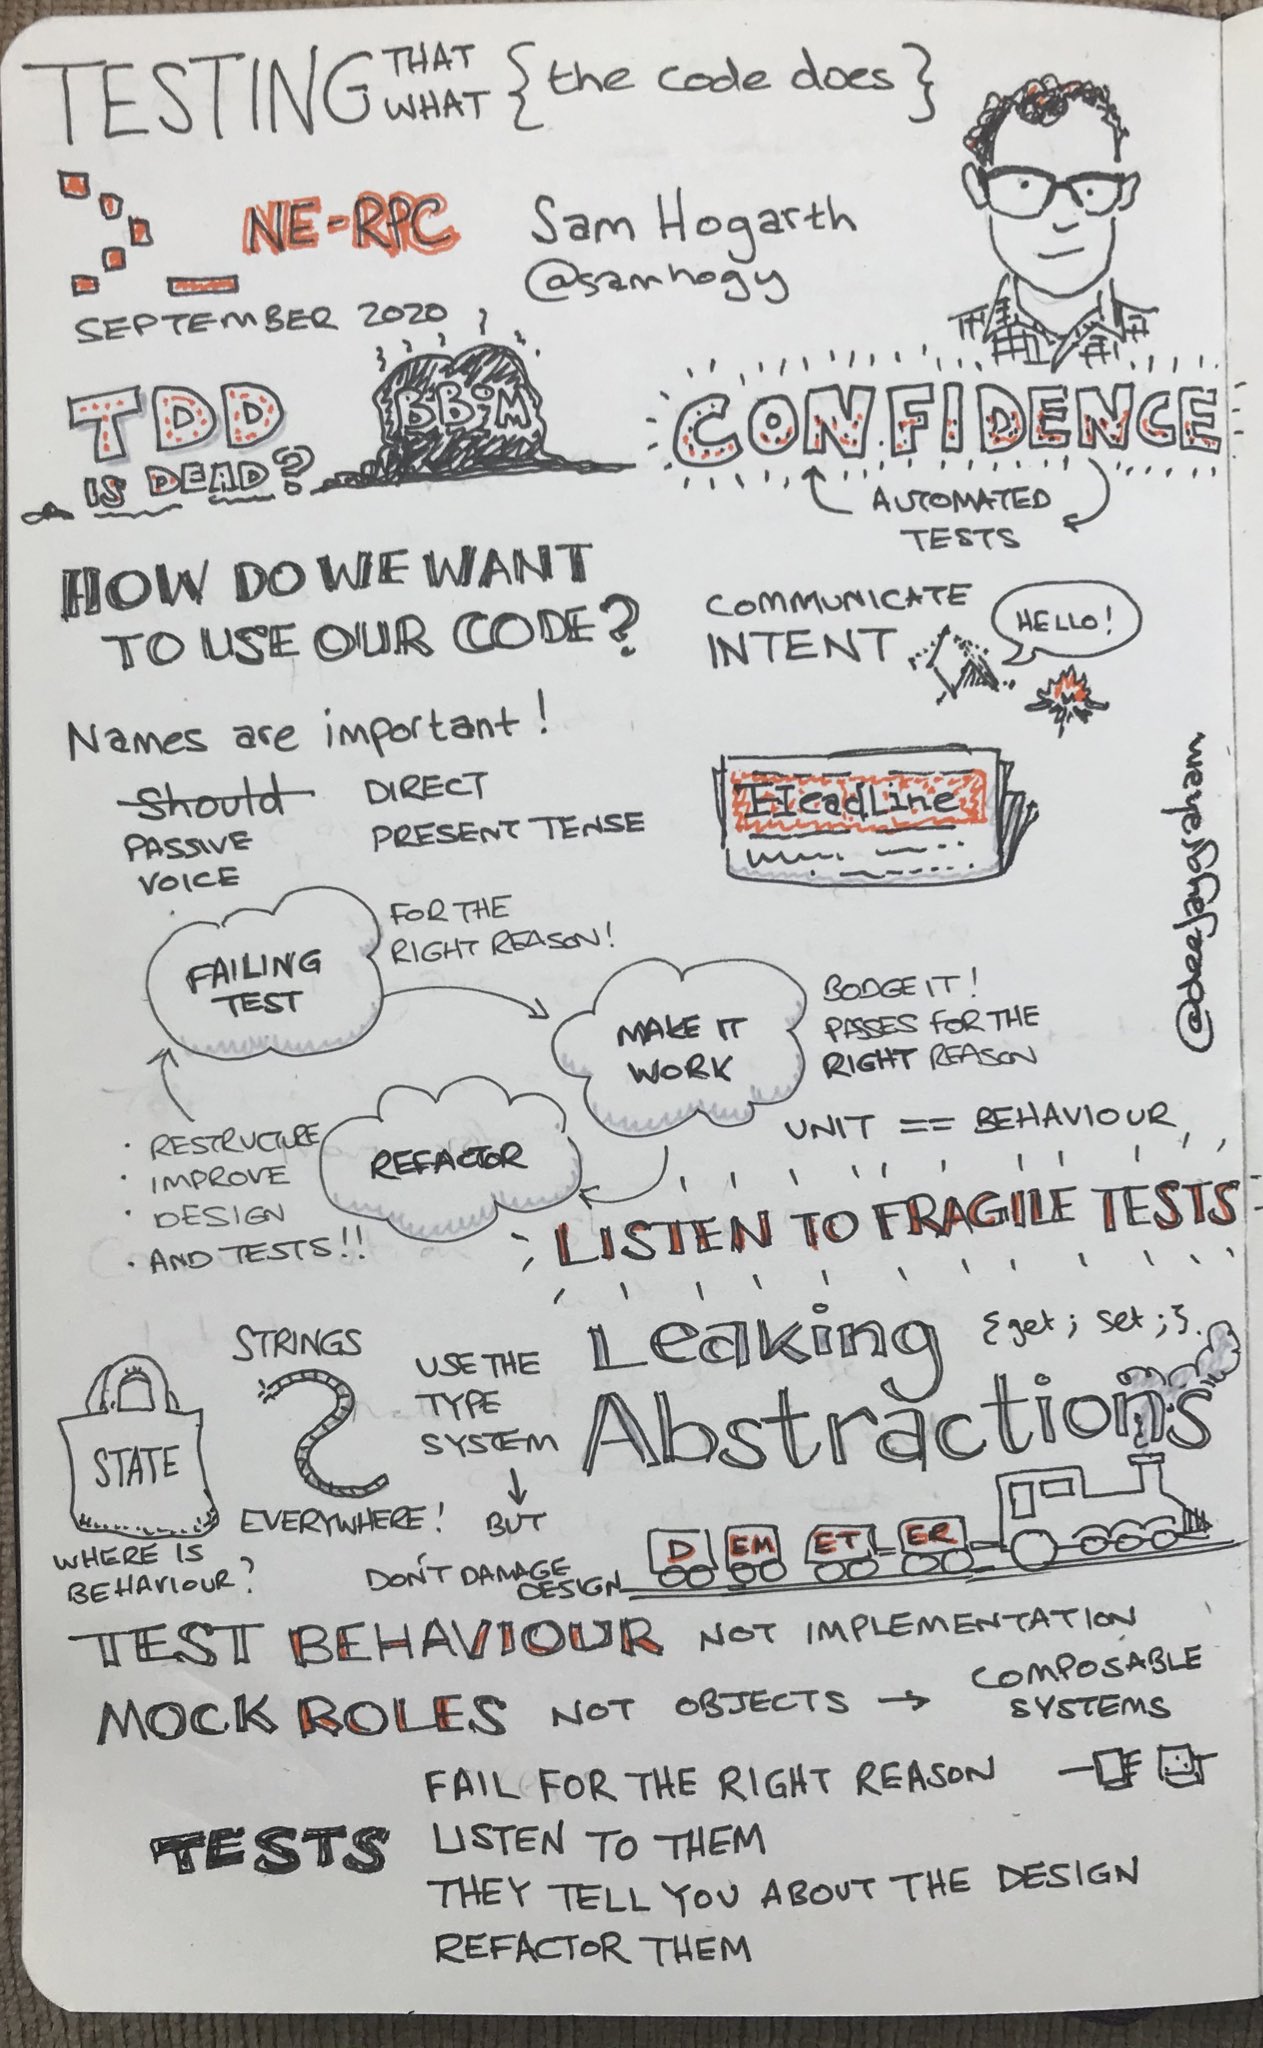 TESTING THAT WHAT { the code does }
NE-RPC
Sam Hogarth
@samhogy
SEPTEMBER 2020
TDD
IS DEAD?
BBoM
CONFIDENCE
AUTOMATED
TESTS
HOW DO WE WANT
TO USE OUR CODE?
COMMUNICATE
INTENT
HELLO!
Names are important!
Should
PASSIVE
VOICE
DIRECT
PRESENT TENSE
HeadLine
@deejaygraham
FAILING
TEST
FOR THE
RIGHT REASON!
MAKE IT
WORK
BODGE IT!
PASSES FOR THE
RIGHT REASON
REFACTOR
· RESTRUCTURE
· IMPROVE
· DESIGN
· AND TESTS!!
UNIT == BEHAVIOUR
LISTEN TO FRAGILE TESTS
STATE
WHERE IS
BEHAVIOUR?
STRINGS
EVERYWHERE!
USE THE
TYPE
SYSTEM
BUT
DON'T DAMAGE
DESIGN
Leaking
{get; set;}
Abstractions
D EM ET ER
TEST BEHAVIOUR NOT IMPLEMENTATION
MOCK ROLES NOT OBJECTS → COMPOSABLE
SYSTEMS
TESTS
FAIL FOR THE RIGHT REASON
LISTEN TO THEM
THEY TELL YOU ABOUT THE DESIGN
REFACTOR THEM